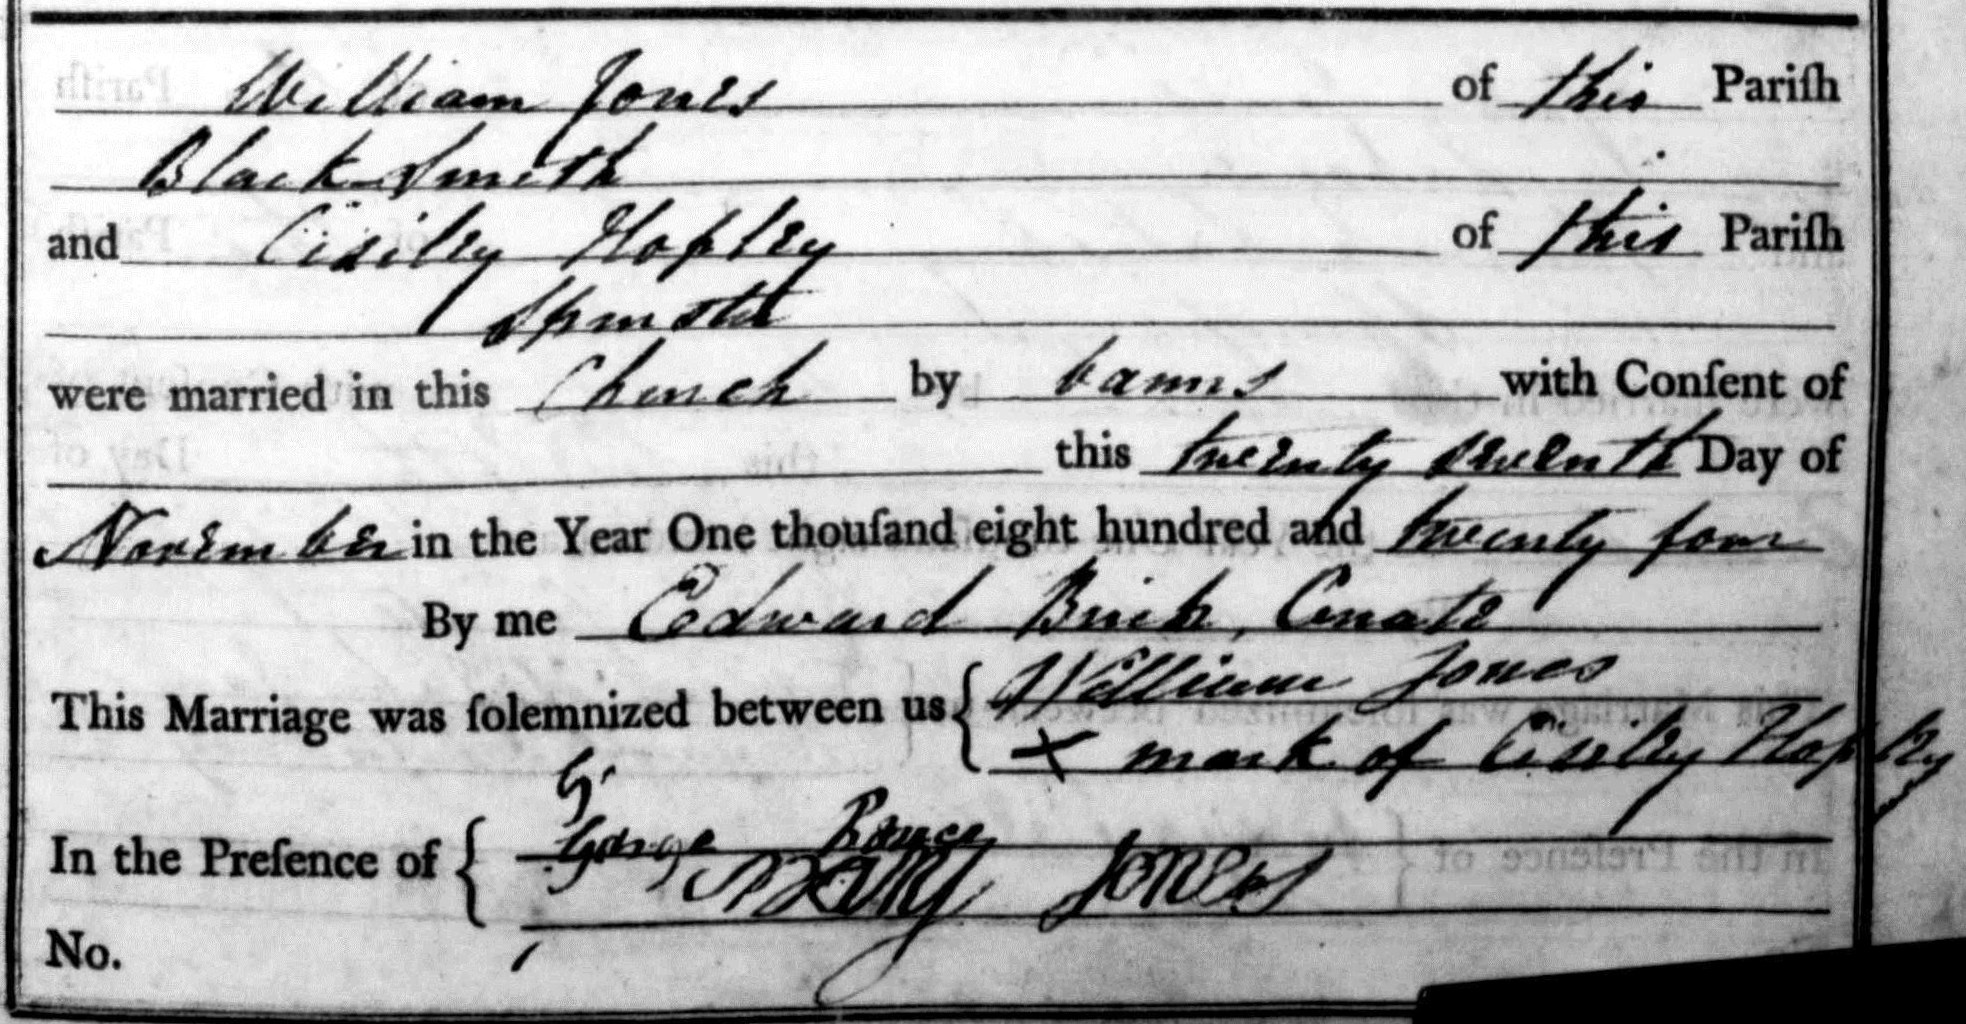 William Jones of this Pariſh
Black Smith
and Cisiley Hopley of this Pariſh
Spinster
were married in this Church by banns with Conſent of
this twenty seventh Day of
November in the Year One thouſand eight hundred and twenty four
By me Edward Curate
This Marriage was ſolemnized between us { William Jones
X mark of Cisiley Hopley
G.
In the Preſence of { George
Mary Jones
No.